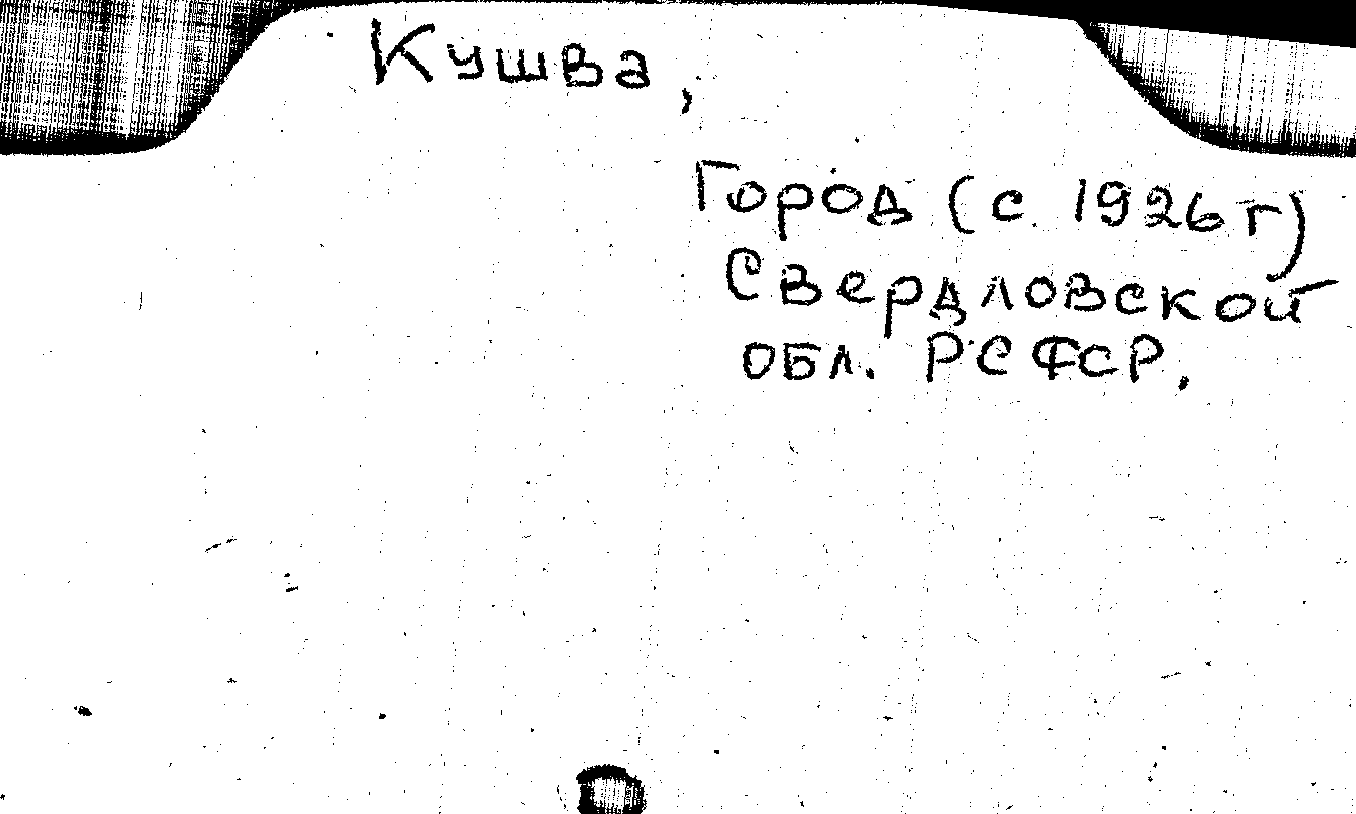 Кушва,
Город (с 1926 г)
Свердловской
обл. РСФСР.